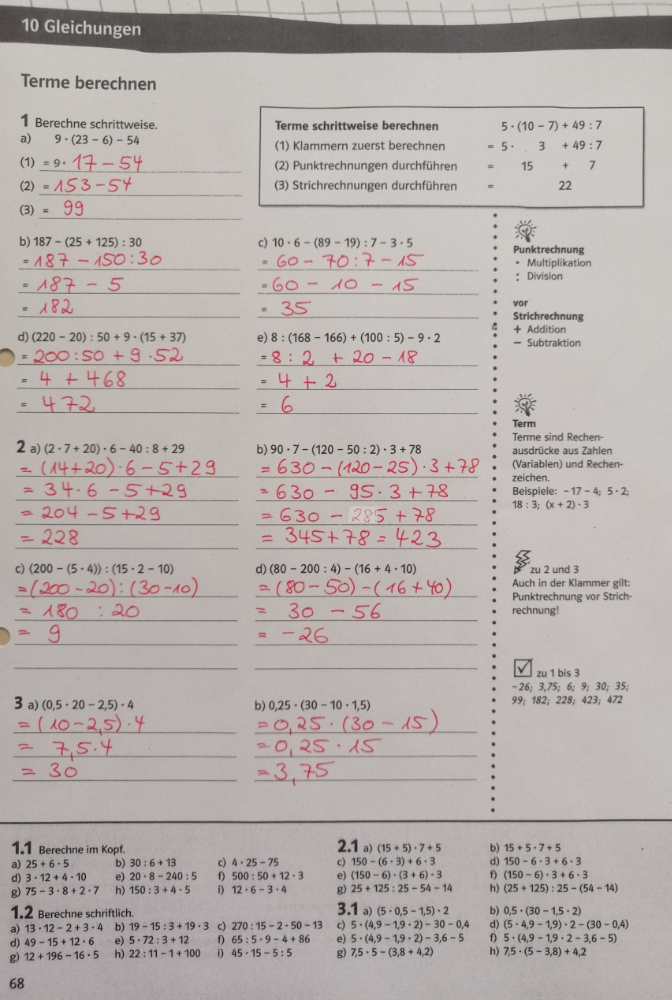 10 Gleichungen
Terme berechnen
1 Berechne schrittweise.
a) 9 · (23 – 6) – 54
(1) = 9 · 17 – 54
(2) = 153 – 54
(3) = 99
Terme schrittweise berechnen 5 · (10 – 7) + 49 : 7
(1) Klammern zuerst berechnen = 5 · 3 + 49 : 7
(2) Punktrechnungen durchführen = 15 + 7
(3) Strichrechnungen durchführen = 22
b) 187 – (25 + 125) : 30
= 187 – 150 : 30
= 187 – 5
= 182
c) 10 · 6 – (89 – 19) : 7 – 3 · 5
= 60 – 70 : 7 – 15
= 60 – 10 – 15
= 35
d) (220 – 20) : 50 + 9 · (15 + 37)
= 200 : 50 + 9 · 52
= 4 + 468
= 472
e) 8 : (168 – 166) + (100 : 5) – 9 · 2
= 8 : 2 + 20 – 18
= 4 + 2
= 6
2 a) (2 · 7 + 20) · 6 – 40 : 8 + 29
= (14 + 20) · 6 – 5 + 29
= 34 · 6 – 5 + 29
= 204 – 5 + 29
= 228
b) 90 · 7 – (120 – 50 : 2) · 3 + 78
= 630 – (120 – 25) · 3 + 78
= 630 – 95 · 3 + 78
= 630 – 285 + 78
= 345 + 78 = 423
c) (200 – (5 · 4)) : (15 · 2 – 10)
= (200 – 20) : (30 – 10)
= 180 : 20
= 9
d) (80 – 200 : 4) – (16 + 4 · 10)
= (80 – 50) – (16 + 40)
= 30 – 56
= – 26
3 a) (0,5 · 20 – 2,5) · 4
= (10 – 2,5) · 4
= 7,5 · 4
= 30
b) 0,25 · (30 – 10 · 1,5)
= 0,25 · (30 – 15)
= 0,25 · 15
= 3,75
Punktrechnung
· Multiplikation
: Division
vor
Strichrechnung
+ Addition
– Subtraktion
Term
Terme sind Rechen-
ausdrücke aus Zahlen
(Variablen) und Rechen-
zeichen.
Beispiele: –17 – 4; 5 · 2;
18 : 3; (x + 2) · 3
zu 2 und 3
Auch in der Klammer gilt:
Punktrechnung vor Strich-
rechnung!
zu 1 bis 3
–26; 3,75; 6; 9; 30; 35;
99; 182; 228; 423; 472
1.1 Berechne im Kopf.
a) 25 + 6 · 5 b) 30 : 6 + 13 c) 4 · 25 – 75
d) 3 · 12 + 4 · 10 e) 20 · 8 – 240 : 5 f) 500 : 50 + 12 · 3
g) 75 – 3 · 8 + 2 · 7 h) 150 : 3 + 4 · 5 i) 12 · 6 – 3 · 4
1.2 Berechne schriftlich.
a) 13 · 12 – 2 + 3 · 4 b) 19 – 15 : 3 + 19 · 3 c) 270 : 15 – 2 · 50 – 13
d) 49 – 15 + 12 · 6 e) 5 · 72 : 3 + 12 f) 65 : 5 · 9 – 4 + 86
g) 12 + 196 – 16 · 5 h) 22 : 11 – 1 + 100 i) 45 · 15 – 5 : 5
2.1 a) (15 + 5) · 7 + 5 b) 15 + 5 · 7 + 5
c) 150 – (6 · 3) + 6 · 3 d) 150 – 6 · 3 + 6 · 3
e) (150 – 6) · (3 + 6) · 3 f) (150 – 6) · 3 + 6 · 3
g) 25 + 125 : 25 – 54 – 14 h) (25 + 125) : 25 – (54 – 14)
3.1 a) (5 · 0,5 – 1,5) · 2 b) 0,5 · (30 – 1,5 · 2)
c) 5 · (4,9 – 1,9 · 2) – 30 – 0,4 d) (5 · 4,9 – 1,9) · 2 – (30 – 0,4)
e) 5 · (4,9 – 1,9 · 2) – 3,6 – 5 f) 5 · (4,9 – 1,9 · 2 – 3,6 – 5)
g) 7,5 · 5 – (3,8 + 4,2) h) 7,5 · (5 – 3,8) + 4,2
68